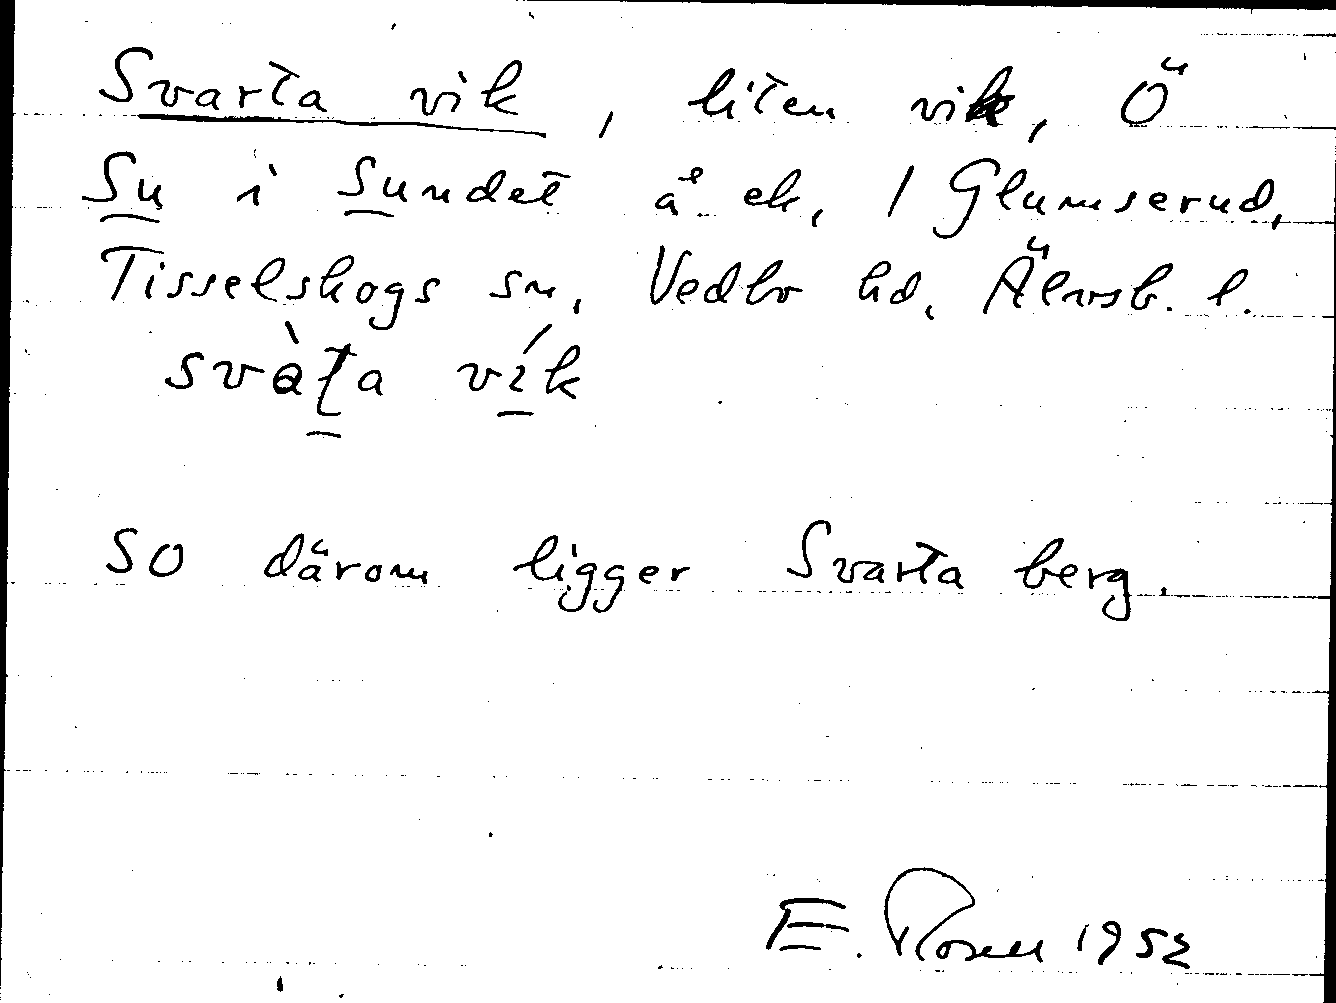 Svarta vik, liten vik, Ö
Su i Sundet å ek. 1 Glumserud,
Tisselskogs sn, Vedbo hd, Älvsb. l.
svàʈa vík
SO därom ligger Svarta berg.
E. Rosell 1952